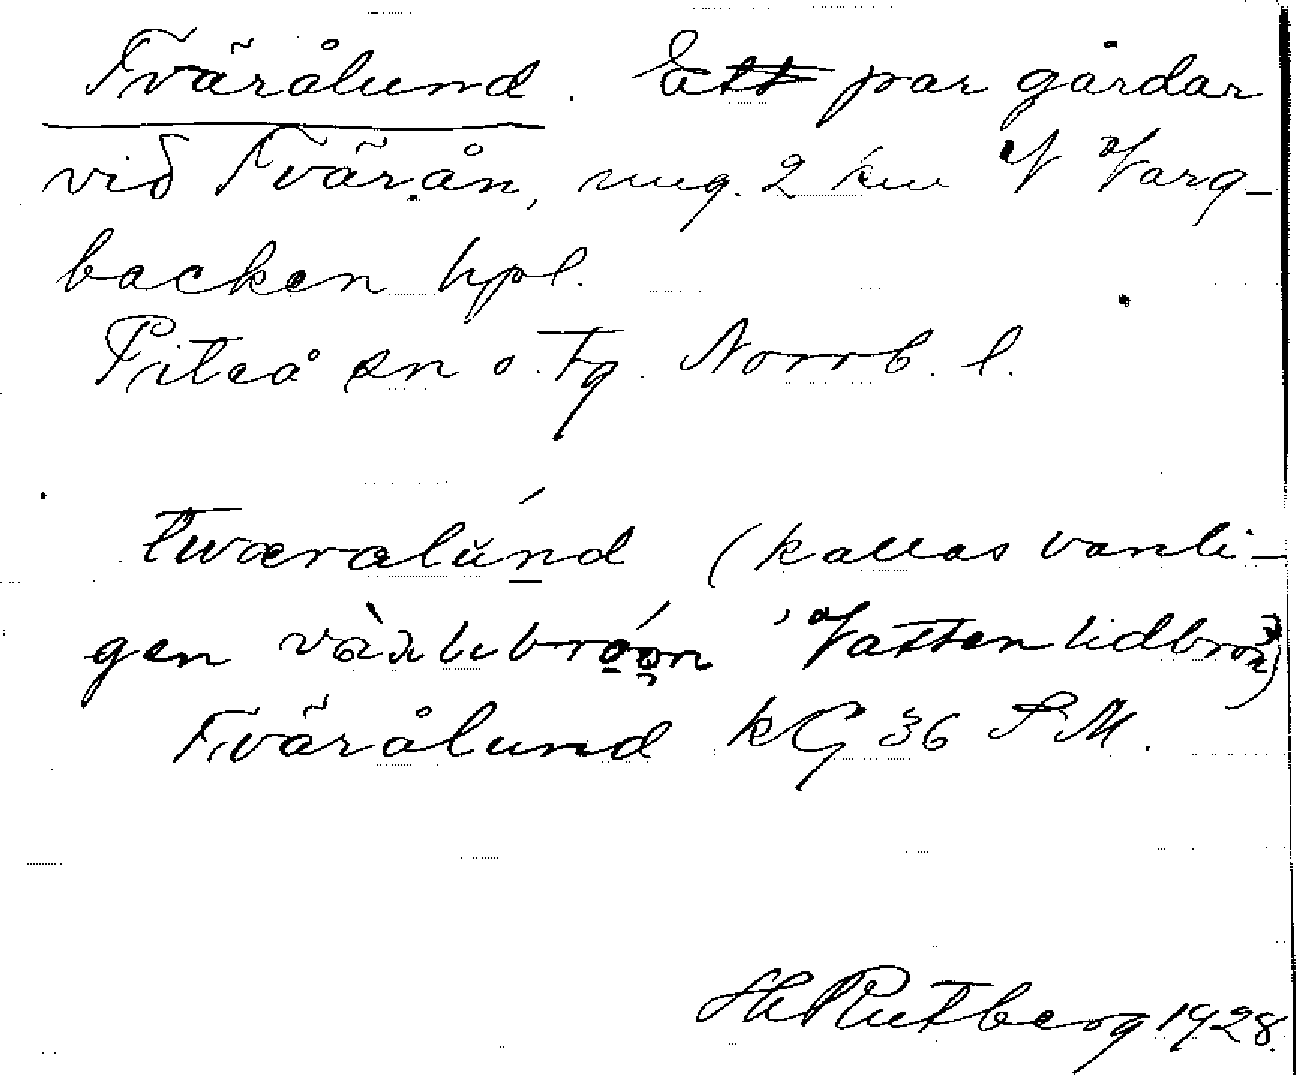 Tvärålund. Ett par gårdar
vid Tvärån, ung. 2 km V Varg-
backen hpl.
Piteå sn o. Tg. Norrb. l.
tværalúnd (kallas vanli-
gen 'Vattenlidbron')
Tvärålund kG 36 S M.
H Rutberg 1928.